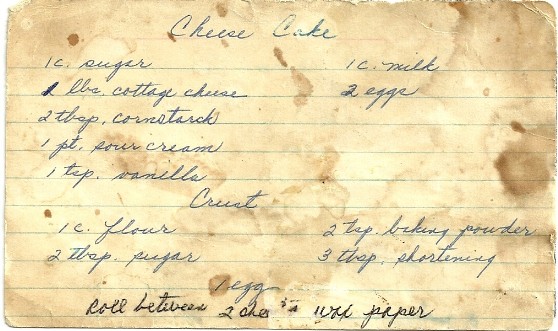 Cheese Cake
1 c. sugar 1 c. milk
lbs. cottage cheese 2 eggs
2 tbsp. cornstarch
1 pt. sour cream
1 tsp. vanilla
Crust
1 c. flour 2 tsp. baking powder
2 tbsp. sugar 3 tbsp. shortening
1 egg
Roll between 2 wax paper